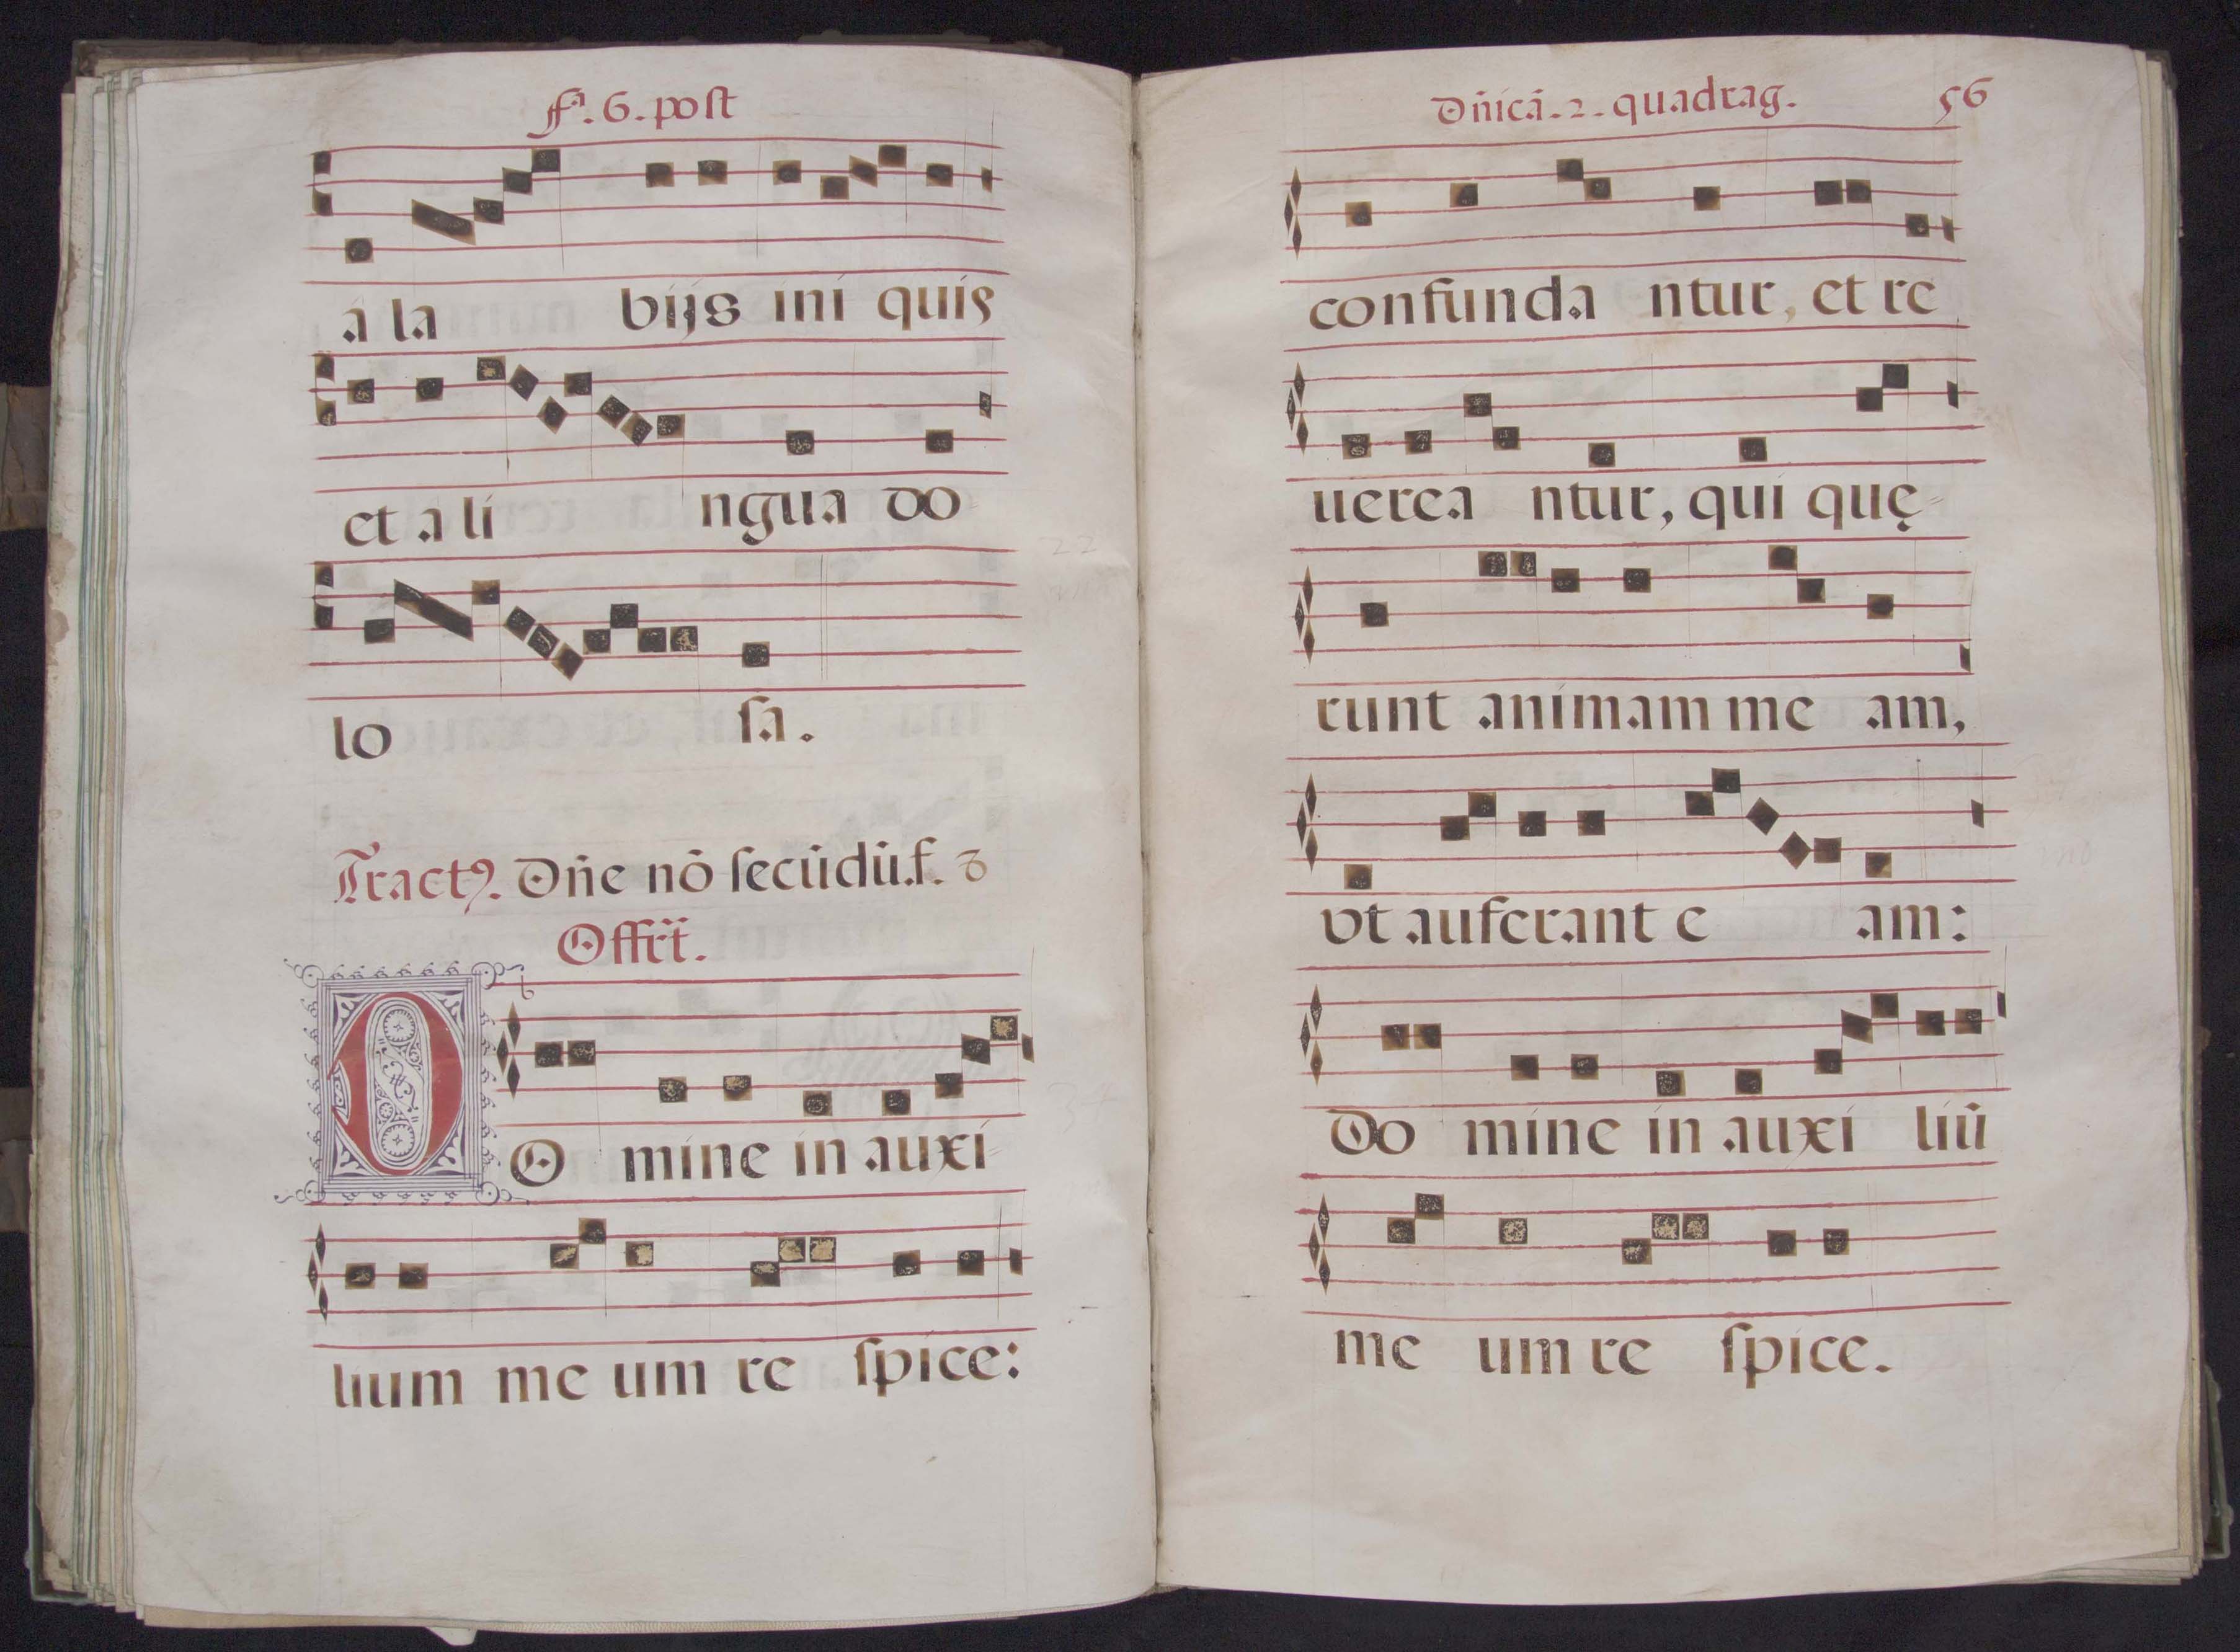 fª. 6. post
á la bijs ini quis
et a li ngua do
lo sa.
Tractꝰ. Dn̄e nō secūdū. f. ð
Offr̄t.
DO mine in auxi
lium me um re spice:
Dn̄icā. 2. quadrag. 56
confunda ntur, et re
uerea ntur, qui quę
runt animam me am,
vt auferant e am:
Do mine in auxi liū
me um re spice.